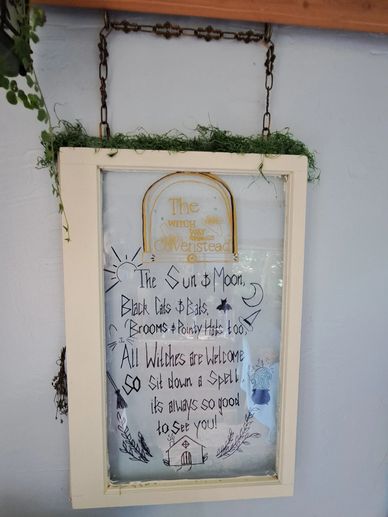 The
WITCH
WAY
Covenstead
The Sun & Moon,
Black Cats & Bats,
Brooms & Pointy Hats too,
All Witches are Welcome
So sit down a Spell,
it's always so good
to see you!